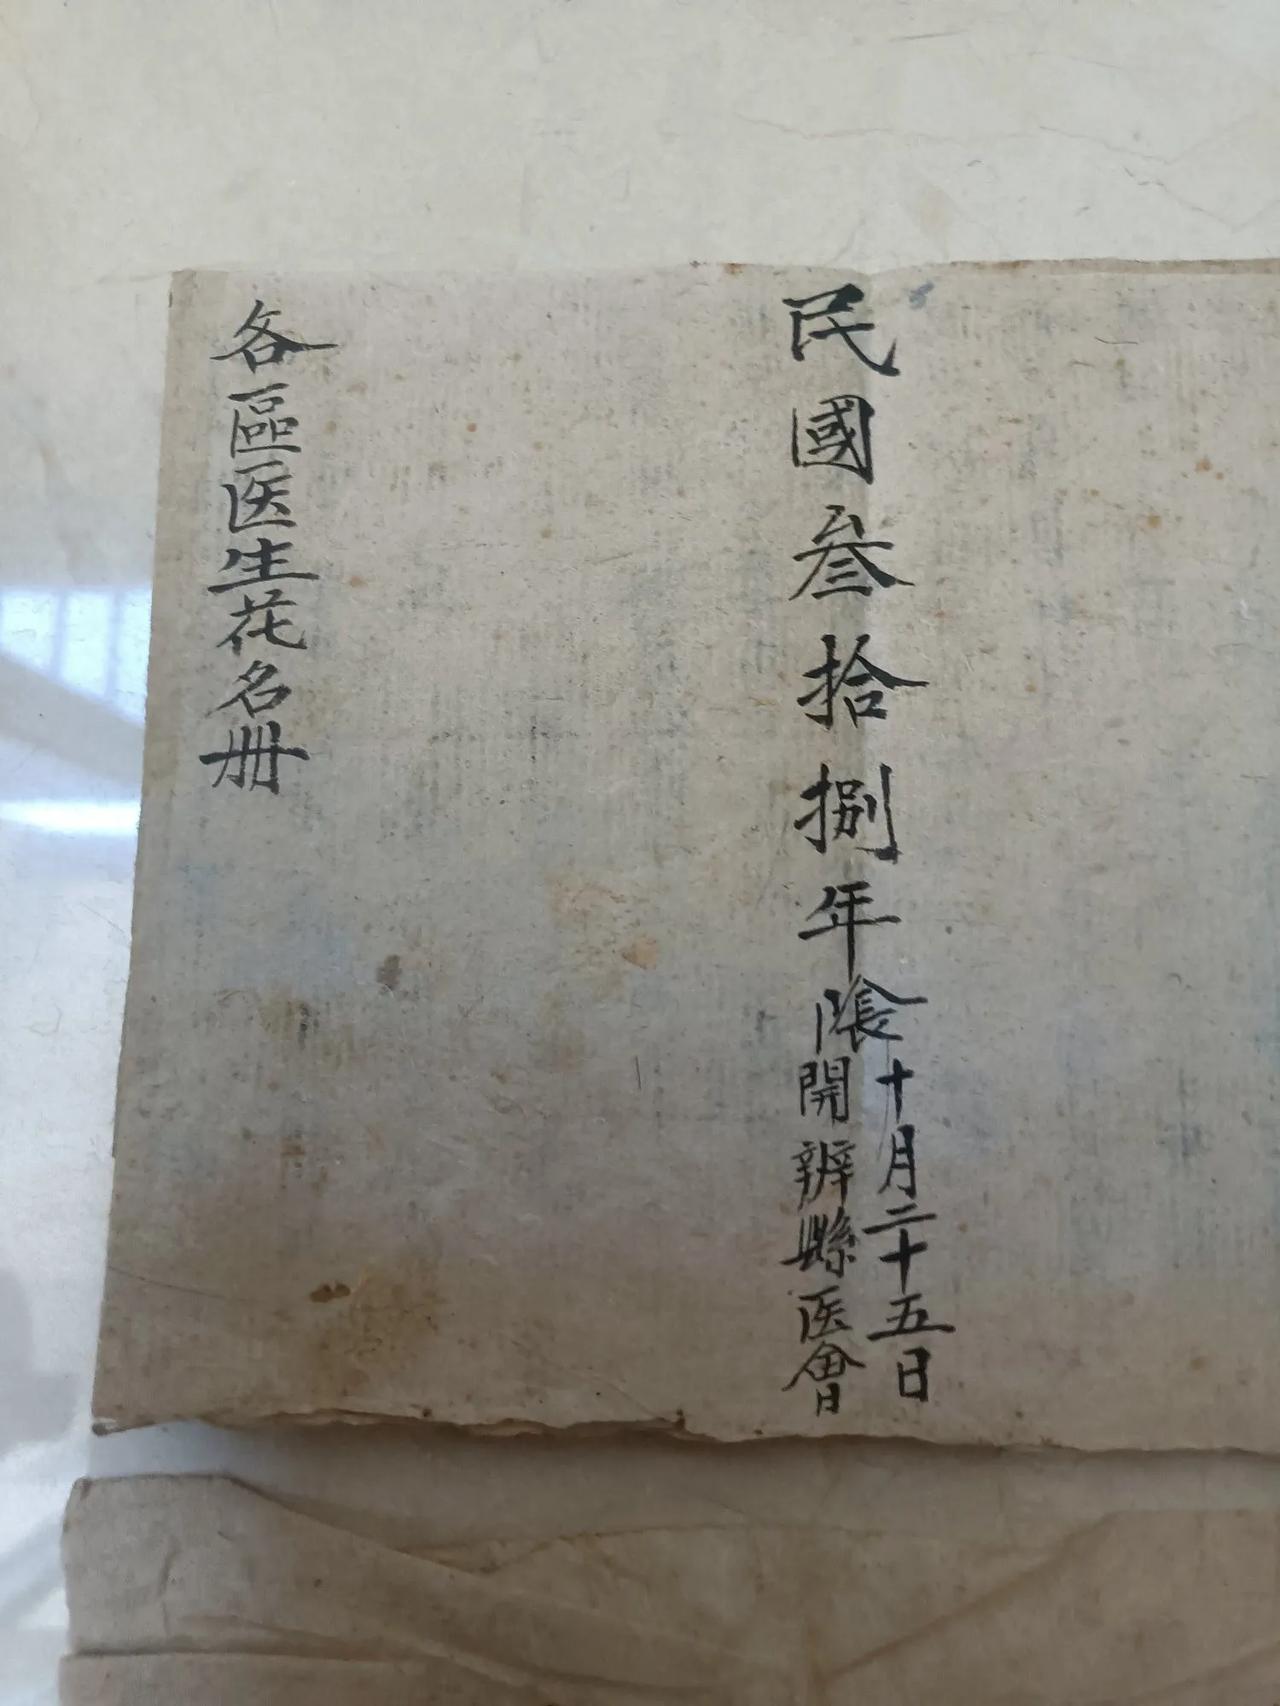 民國叁拾捌年陰十月二十五日
開辦縣医會
各區医生花名册